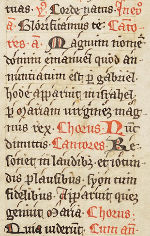 tuas. v. Corde natus. In ev̄
a. Glorificamus te. Cato
res a. Magnum nomē
domini emanuel quod an
nuntiatum est p̱ gabriel
hodie apparuit in israhel
p̱ mariam virginez mag
nus rex. Chorus. Nūc
dimittis. Cantores. Re
sonet in laudibz. et iocun
dis plausibus. syon cum
fidelibus. Apparuit quez
genuit Maria. Chorus.
Quia viderūt. Cum an̄